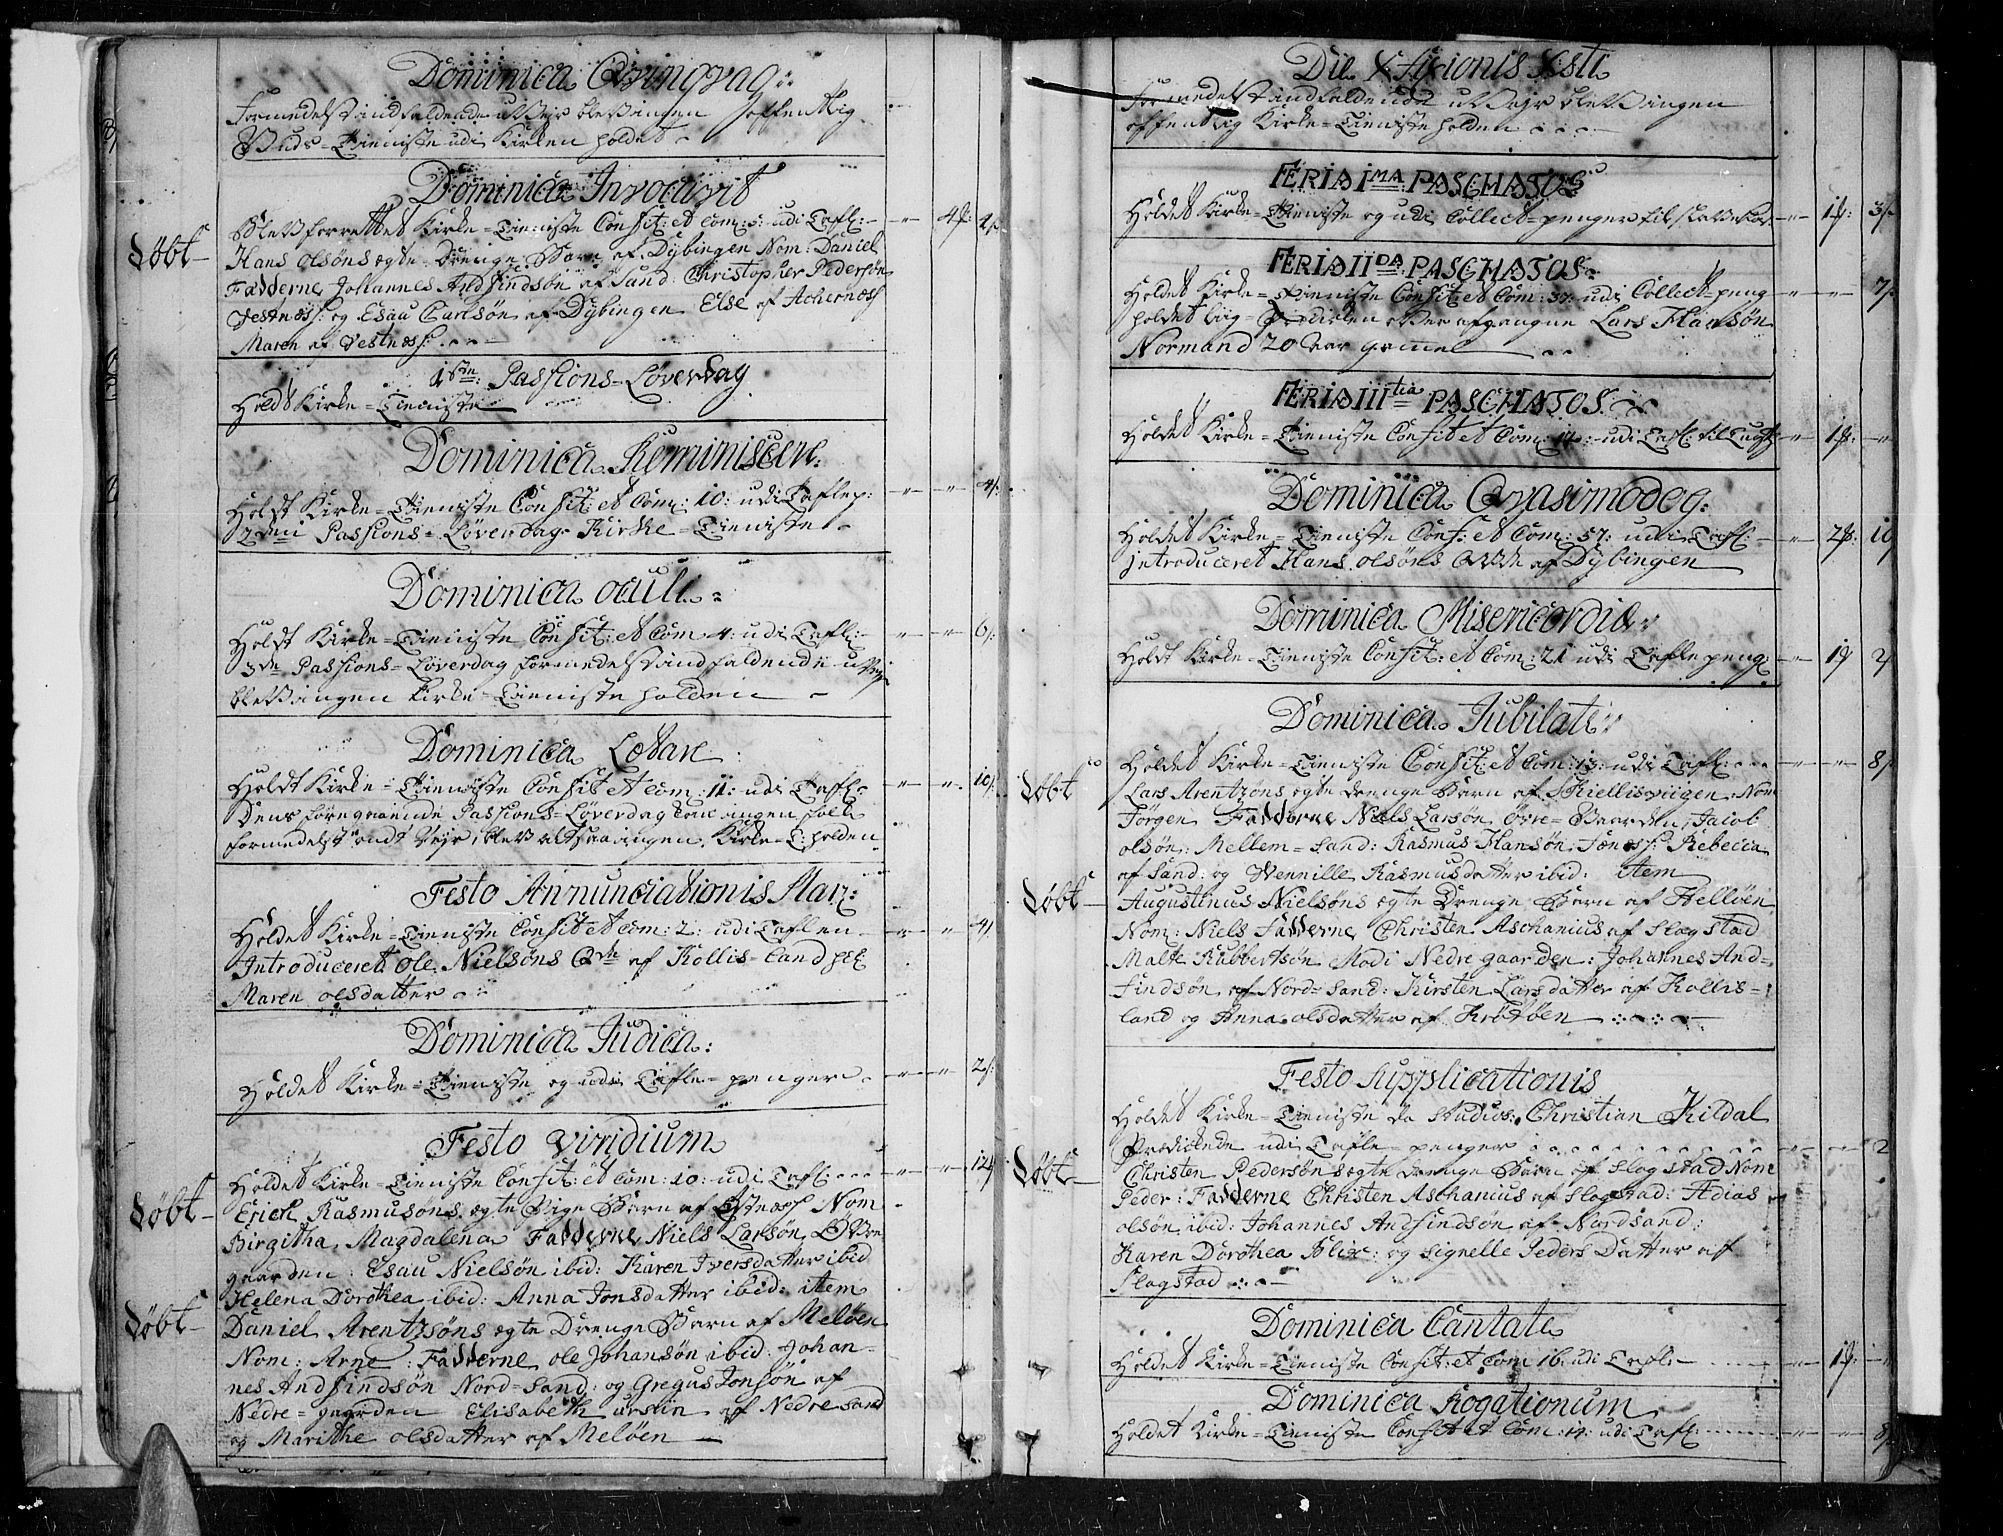 Dominica Qvinqvag:
formedelst indfaldende uVeyr blev ingen offentlig
Guds=Tieniste udi Kirken holdet
Dominica Invocavit
Blev forrettet Kirke=Tieniste Confit: et Com: 5: udi Tafl: 4β:
Døbt
Hans Olsøns egte Drenge Barn af Dybingen Nom: Daniel
Fadderne Johannes Andfindsøn af Sand: Christopher Pedersøn
Festnæss: og Esau Carlsøn af Dybingen Else af Achernæss
Maren af Vestnæss:
1ste Passions=Løverdag
Holdt Kirke=Tieniste
Dominica Reminiscere:
Holdt Kirke=Tieniste Confit: et Com: 10: udi Taflep:
2den Passions=Løverdag Kirke=Tieniste
Dominica Oculi
Holdt Kirke=Tieniste Confit: et Com 4: udi Tafl: 6β:
3de Passions=Løverdag formedelst indfaldende uVeyr
blev ingen Kirke=Tieniste holden
Dominica Lætare
Holdt Kirke=Tieniste Confit et Com: 11: udi Tafl: 10β:
Dens foregaaende Passions=Løverdag kom ingen folk
formedelst ondt Veyr, blev altsaa ingen Kirke=T: holden
Festo Annunciationis Mar:
Holdet Kirke=Tieniste Confit et Com: 2: udi Taflen
Introduceret Ole Nielsøns Qvde af Kollis=Land
Maren Olsdatter
Dominica Judica:
Holdet Kirke=Tieniste og udi Tafle=penger 2β:
Festo Viridium
Holdet Kirke=Tieniste Confit: et Com: 10: udi Tafl: 12β
Døbt
Erich Rasmusøns egte Pige Barn af Estnæss Nom
Birgitha Magdalena Fadderne Niels Larsøn Øvre
gaarden: Esau Nielsøn ibid: Karen Iversdatter ibid
Helena Dorothea ibid: Anna Jonsdatter ibid: item
Døbt
Daniel Arentzøns egte Drenge Barn af Meløen
Nom: Arne: Fadderne Ole Johansøn ibid: Johan=
nes Andfindsøn Nord=Sand: og Gregus Jonsøn af
Nedre=gaarden Elisabeth af Nedre Sand
og Marithe Olsdatter af Meløen
Die Xfixionis Xsti
Formedelst indfaldende uVeyr blev ingen
offentlig Kirke=Tieniste holden
FERIA Ima PASCHATOS
Holdet Kirke=Tieniste og udi Collect=penger til 1β: 3β
FERIA IIDA PASCHATOS
Holdet Kirke=Tieniste Confit: et Com: 37: udi Collect=peng 7β
holdet Liig=Prediken over afgangne Lars Hansøn
Normand 20 Aar gamel
FERIA IIItia PASCHATOS
Holdet Kirke=Tieniste Confit et Com: 14: udi Tafl: 1β:
Dominica Qvasimodog:
Holdet Kirke=Tieniste Conf: et Com: 57: udi Tafl: 2β: 10
introduceret Hans Olsøns Qvde af Dybingen
Dominica Misericordiæ
Holdt Kirke=Tieniste Confit: et Com: 21 udi Taflepeng: 1β 2β
Dominica Jubilate
Holdet Kirke=Tieniste Confit: et Com: 13: udi Tafl: 8β
Døbt
Lars Arentzøns egte Drenge Barn af Kiellisviigen: Nom
Jørgen Fadderne Niels Larsøn Øvre=Gaarden, Jacob
Olsøn: Mellem=Sand: Rasmus Hansøn Fønæss: Rebecca
af Sand: og Wennille Rasmusdatter ibid: item
Døbt
Augustinus Nielsøns egte Drenge Barn af Helløen
Nom: Niels Fadderne Christen Aschanius af Slogstad
Malte Kubbertsøn Modi Nedre gaarden: Johannes And=
findsøn af Nord=Sand: Kirsten Larsdatter af Kollis=
land og Anna Olsdatter af Krøtøen
Festo Supplicationis
Holdet Kirke=Tieniste da Studios: Christian Kildal
Prædickede udi Tafle=penger 2
Døbt
Christen Pedersøns egte Drenge Barn af Slogstad Nom
Peder: Fadderne Christen Aschanius af Slogstad: Adias
Olsøn ibid: Johannes Andfindsøn af Nordsand:
Karen Dorothea Blix: og Signelle Peders Datter af
Slogstad
Dominica Cantate
Holdet Kirke=Tieniste Confit: et Com 16: udi Tafl: 1β:
Dominica Rogationum
Holdet Kirke=Tieniste Confit et Com: 14: udi Tafl: 8β